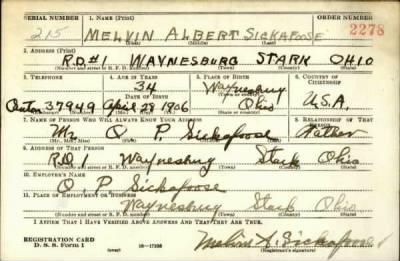 SERIAL NUMBER 1. NAME (Print) ORDER NUMBER
215 MELVIN ALBERT SICKAFOOSE 2278
(First) (Middle) (Last)
2. ADDRESS (Print)
R.D.#1 WAYNESBURG STARK OHIO
(Number and street or R. F. D. number) (Town) (County) (State)
3. TELEPHONE 4. AGE IN YEARS 5. PLACE OF BIRTH 6. COUNTRY OF CITIZENSHIP
34 Waynesburg
DATE OF BIRTH
37949 April 28 1906 Ohio U.S.A.
7. NAME OF PERSON WHO WILL ALWAYS KNOW YOUR ADDRESS 8. RELATIONSHIP OF THAT PERSON
Mr. O P. Sickafoose Father
(Mr., Mrs., Miss) (First) (Middle) (Last)
9. ADDRESS OF THAT PERSON
R.D. 1 Waynesburg Stark Ohio
(Number and street or R. F. D. number) (Town) (County) (State)
10. EMPLOYER'S NAME
O. P. Sickafoose
11. PLACE OF EMPLOYMENT OR BUSINESS
Waynesburg Stark Ohio
(Number and street or R. F. D. number) (Town) (County) (State)
I AFFIRM THAT I HAVE VERIFIED ABOVE ANSWERS AND THAT THEY ARE TRUE.
REGISTRATION CARD
D. S. S. Form 1 (over) 16—17105 Melvin A. Sickafoose
(Registrant's signature)